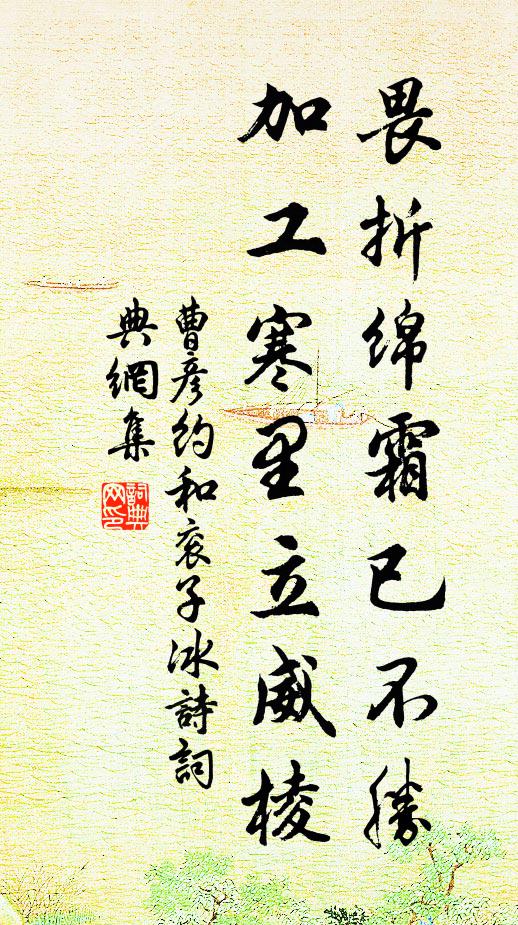 畏折绵霜已不勝
加工寒里立威棱
曹彦约和衮子冰詩詞
典網集
詞典
网印